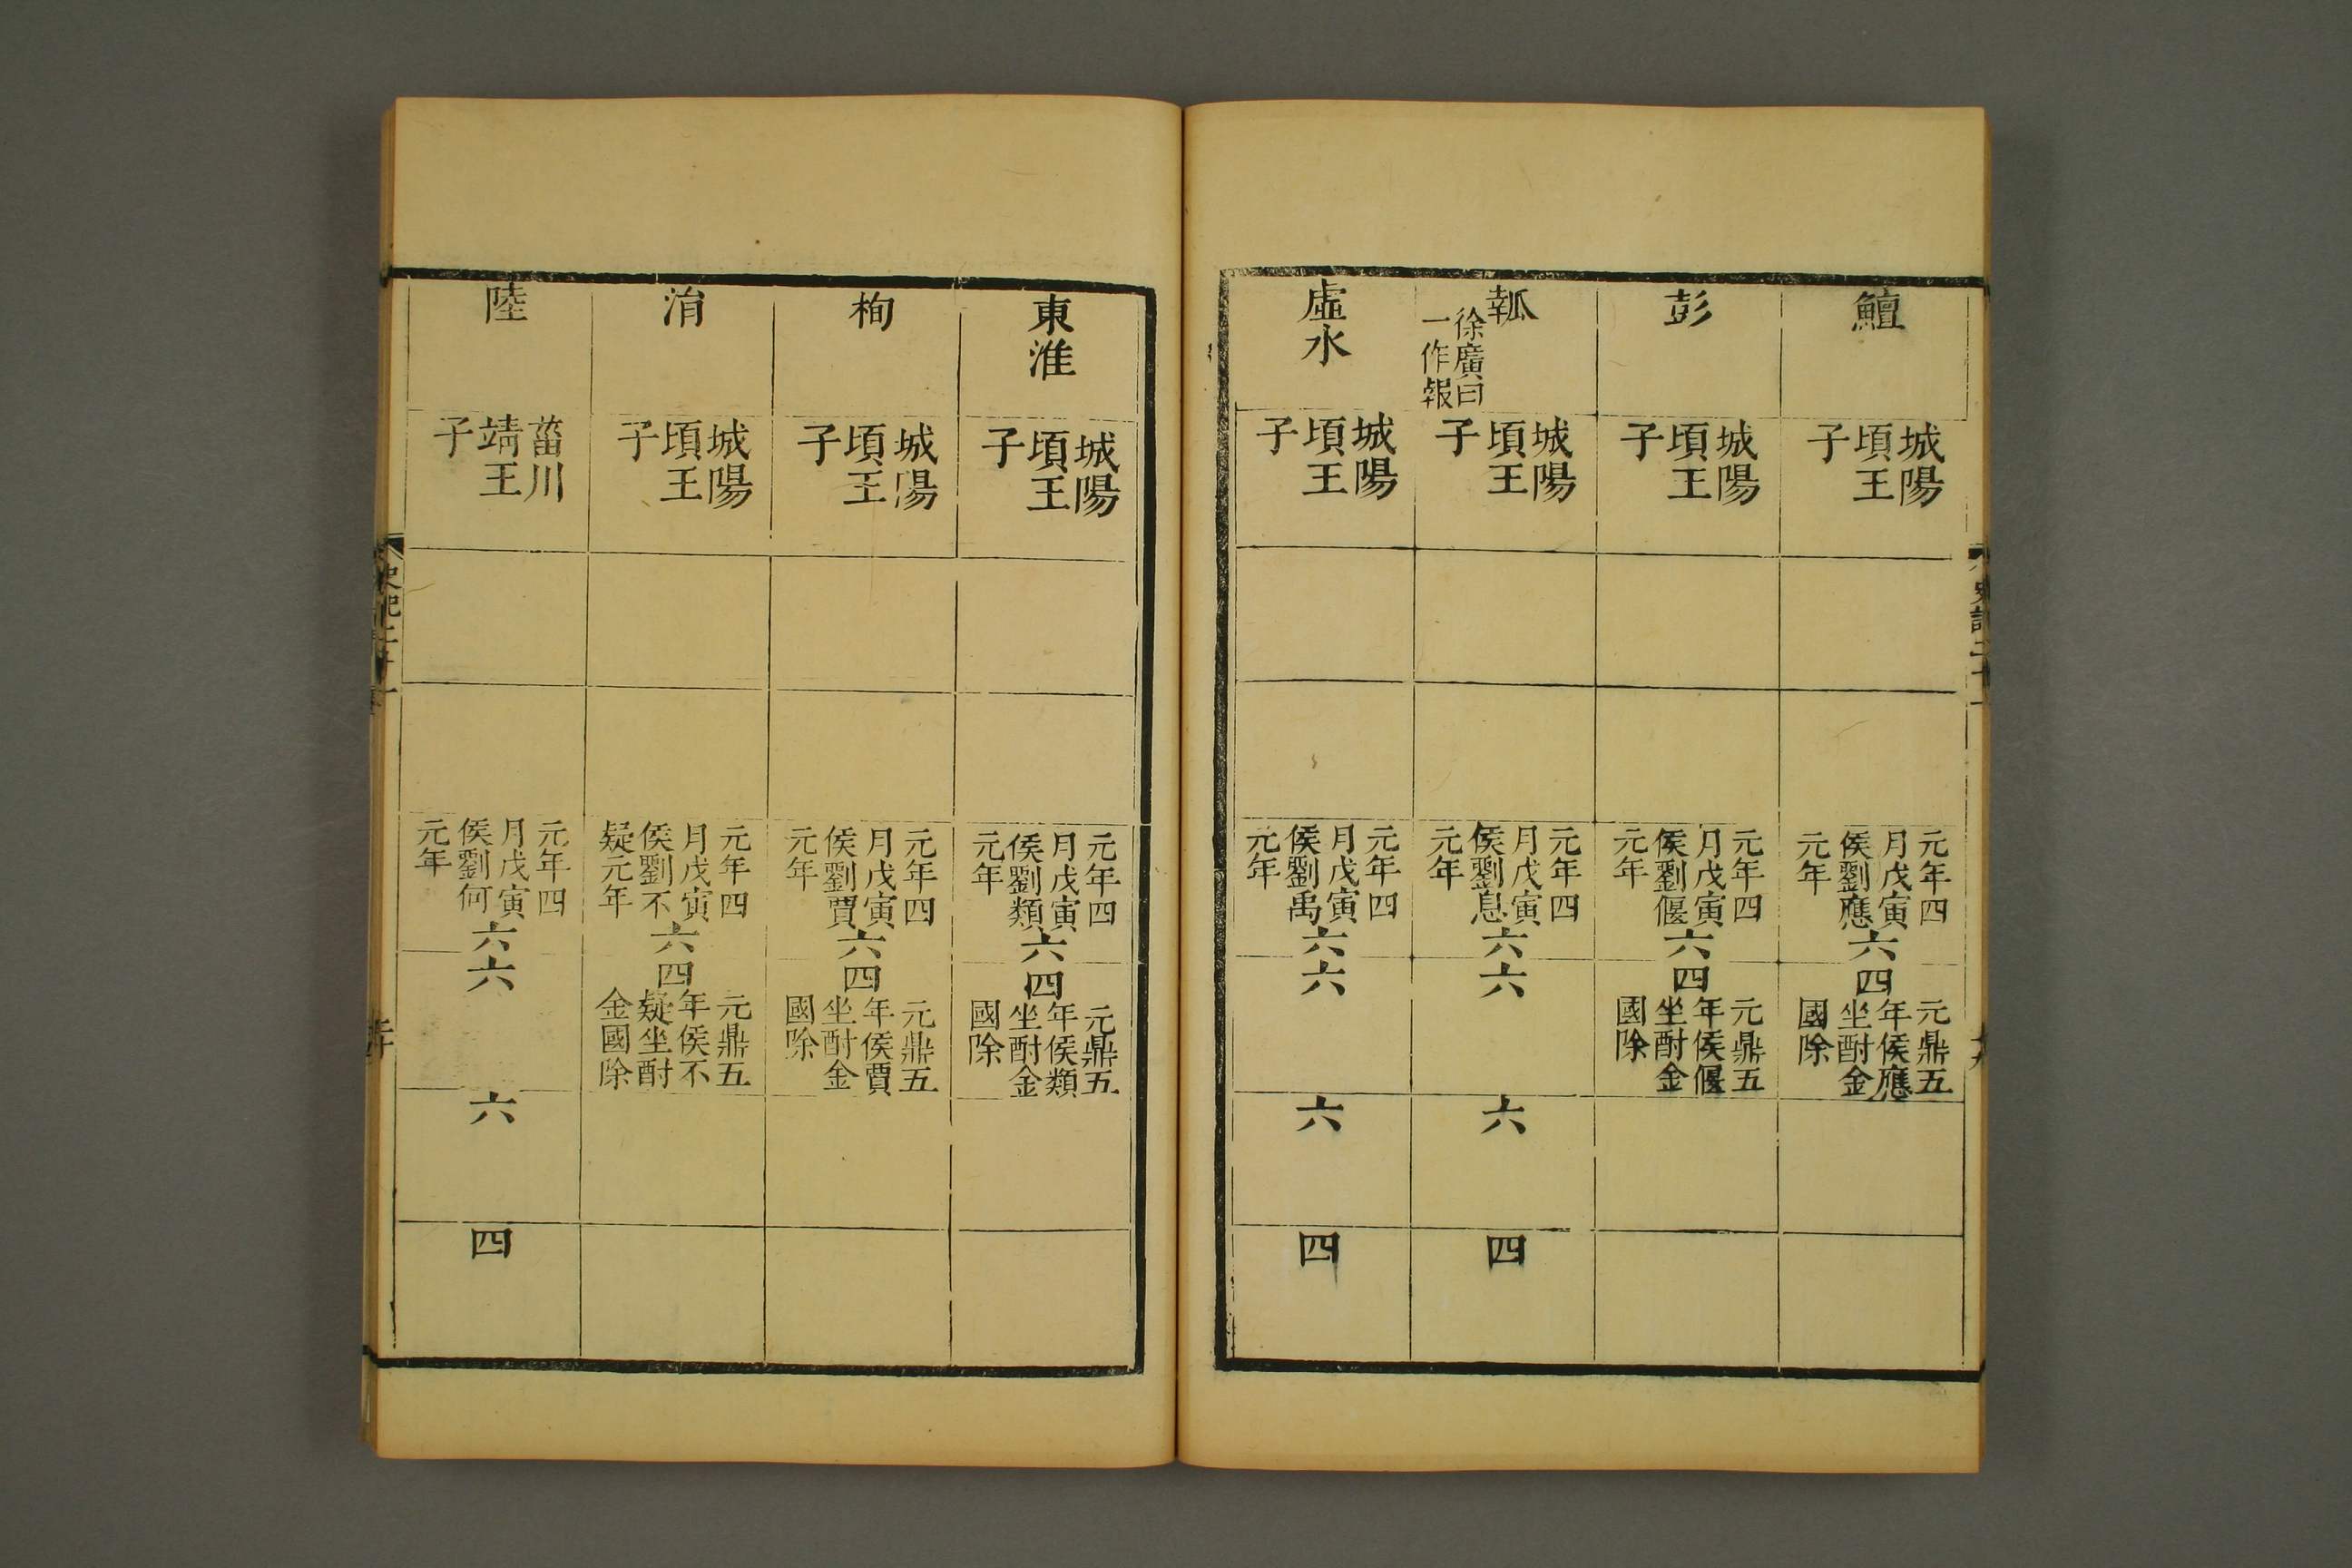 鱣
城陽
頃王
子
元年四
月戊寅
侯劉應
元年
六
四
元鼎五
年侯應
坐酎金
國除
彭
城陽
頃王
子
元年四
月戊寅
侯劉偃
元年
六
四
元鼎五
年侯偃
坐酎金
國除
瓡
徐廣曰
一作報
城陽
頃王
子
元年四
月戊寅
侯劉息
元年
六
六
六
四
虛水
城陽
頃王
子
元年四
月戊寅
侯劉禹
元年
六
六
六
四
東淮
城陽
頃王
子
元年四
月戊寅
侯劉類
元年
六
四
元鼎五
年侯類
坐酎金
國除
栒
城陽
頃王
子
元年四
月戊寅
侯劉賈
元年
六
四
元鼎五
年侯賈
坐酎金
國除
淯
城陽
頃王
子
元年四
月戊寅
侯劉不
疑元年
六
四
元鼎五
年侯不
疑坐酎
金國除
陸
菑川
靖王
子
元年四
月戊寅
侯劉何
元年
六
六
六
四
史記二十一